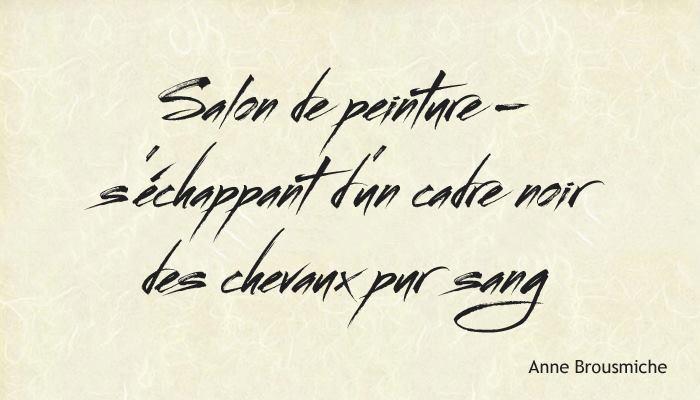 Salon de peinture –
s'échappant d'un cadre noir
des chevaux pur sang
Anne Brousmiche